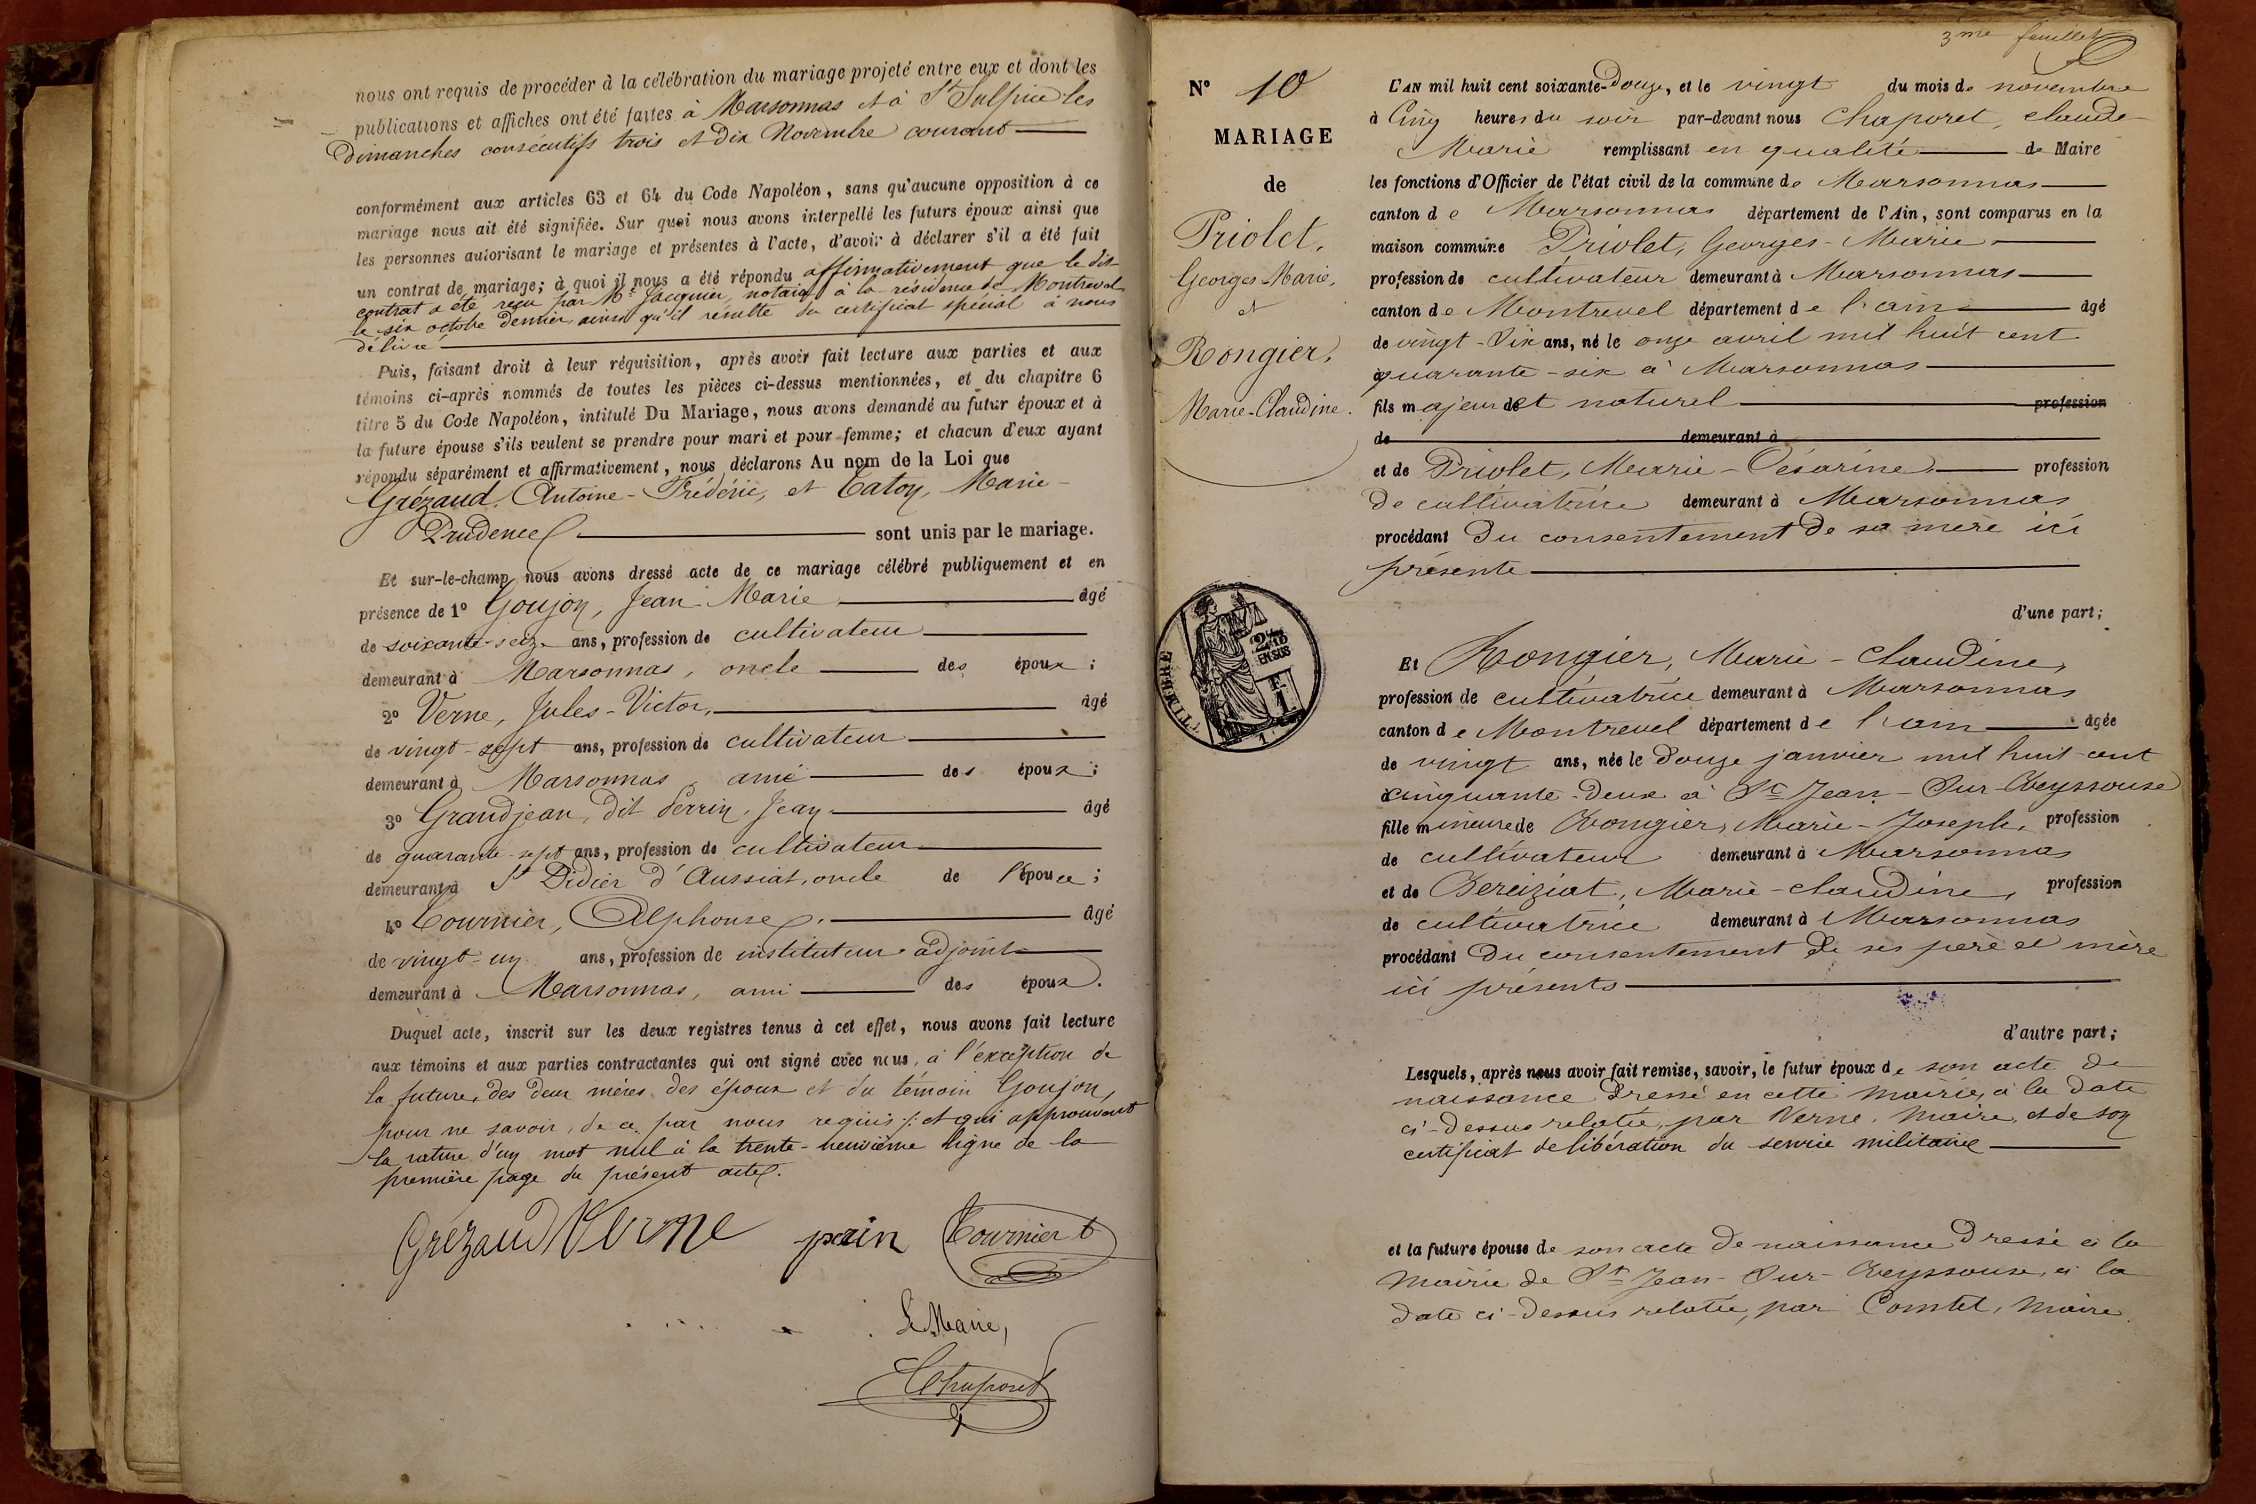 nous ont requis de procéder à la célébration du mariage projeté entre eux et dont les
publications et affiches ont été faites à Marsonnas et à St Sulpice les
Dimanches consécutifs trois et dix Novembre courant
conformément aux articles 63 et 64 du Code Napoléon, sans qu'aucune opposition à ce
mariage nous ait été signifiée. Sur quoi nous avons interpellé les futurs époux ainsi que
les personnes autorisant le mariage et présentes à l'acte, d'avoir à déclarer s'il a été fait
un contrat de mariage; à quoi il nous a été répondu affirmativement que le dit
contrat a été reçu par Me Jacquier, notaire à la résidence de Montrevel
le six octobre dernier, ainsi qu'il résulte du certificat spécial à nous
délivré
Puis, faisant droit à leur réquisition, après avoir fait lecture aux parties et aux
témoins ci-après nommés de toutes les pièces ci-dessus mentionnées, et du chapitre 6
titre 5 du Code Napoléon, intitulé Du Mariage, nous avons demandé au futur époux et à
la future épouse s'ils veulent se prendre pour mari et pour femme; et chacun d'eux ayant
répondu séparément et affirmativement, nous déclarons Au nom de la Loi que
Grézaud, Antoine-Frédéric, et Catoy, Marie-
Prudence sont unis par le mariage.
Et sur-le-champ nous avons dressé acte de ce mariage célébré publiquement et en
présence de 1o Goujon, Jean-Marie âgé
de soixante-seize ans, profession de cultivateur
demeurant à Marsonnas, oncle des époux;
2o Verne, Jules-Victor, âgé
de vingt-sept ans, profession de cultivateur
demeurant à Marsonnas, ami des époux;
3o Grandjean, dit Perrin, Jean âgé
de quarante-sept ans, profession de cultivateur
demeurant à St Didier d'Aussiat, oncle de l'épouse;
4o Tournier, Alphonse, âgé
de vingt-un ans, profession de instituteur adjoint
demeurant à Marsonnas, ami des époux.
Duquel acte, inscrit sur les deux registres tenus à cet effet, nous avons fait lecture
aux témoins et aux parties contractantes qui ont signé avec nous, à l'exception de
la future, des deux mères des époux et du témoin Goujon,
pour ne savoir, de ce par nous requis /: et qui approuvent
la rature d'un mot nul à la trente-neuvième ligne de la
première page du présent acte.
Grézaud Verne Tournier
Le Maire,
Chaporet
3me feuillet
No 10
MARIAGE
de
Priolet,
Georges-Marie,
et
Rongier,
Marie-Claudine.
TIMBRE
2 10es
EN SUS
F.
1
L'AN mil huit cent soixante-Douze, et le vingt du mois de novembre
à Cinq heures du soir par-devant nous Chaporet, Claude-
Marie remplissant en qualité de Maire
les fonctions d'Officier de l'état civil de la commune de Marsonnas
canton de Marsonnas département de l'Ain, sont comparus en la
maison commune Priolet, Georges-Marie
profession de cultivateur demeurant à Marsonnas
canton de Montrevel département de l'ain âgé
de vingt-six ans, né le onze avril mil huit cent
quarante-six à Marsonnas
fils majeur et naturel profession
de demeurant à
et de Priolet, Marie-Césarine profession
de cultivatrice demeurant à Marsonnas
procédant du consentement de sa mère ici
présente
d'une part;
Et Rongier, Marie-Claudine,
profession de cultivatrice demeurant à Marsonnas
canton de Montrevel département de l'ain âgée
de vingt ans, née le Douze janvier mil huit cent
cinquante-Deux à St Jean-Sur-Reyssouze
fille mineure de Rongier, Marie-Joseph, profession
de cultivateur demeurant à Marsonnas
et de Bereiziat, Marie-Claudine, profession
de cultivatrice demeurant à Marsonnas
procédant du consentement de ses père et mère
ici présents
d'autre part;
Lesquels, après nous avoir fait remise, savoir, le futur époux de son acte de
naissance Dressé en cette Mairie, à la Date
ci-dessus relatée, par Verne, Maire, et de son
certificat de libération du service militaire
et la future épouse de son acte de naissance Dressé à la
Mairie de St Jean-Sur-Reyssouze, à la
Date ci-dessus relatée, par Comtet, Maire.